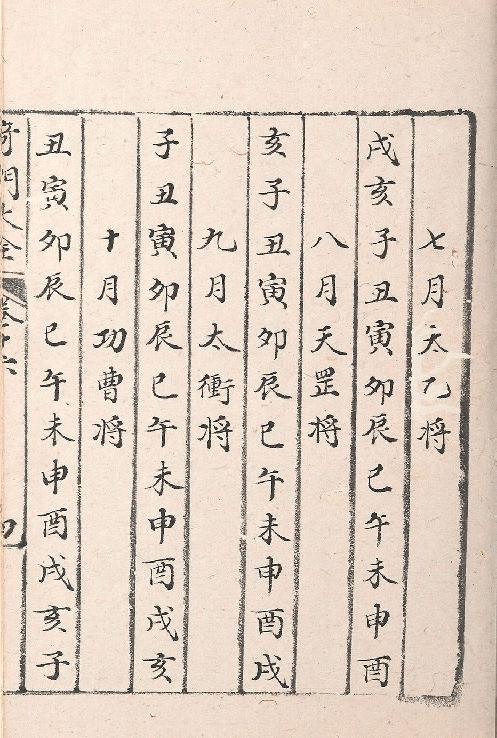 七月太乙将
戌亥子丑寅卯辰巳午未申酉
八月天罡将
亥子丑寅卯辰巳午未申酉戌
九月太衝将
子丑寅卯辰巳午未申酉戌亥
十月功曹将
丑寅卯辰巳午未申酉戌亥子
奇門大全